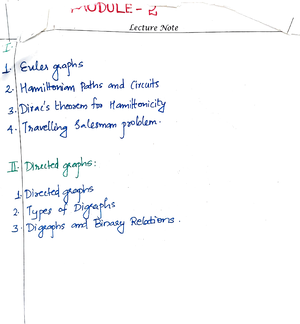 MODULE - 2
Lecture Note
I.
1. Euler graphs
2. Hamiltonian Paths and Circuits
3. Dirac's theorem for Hamiltonicity
4. Travelling Salesman problem.
II. Directed graphs:
1. Directed graphs
2. Types of Digraphs
3. Digraphs and Binary Relations.